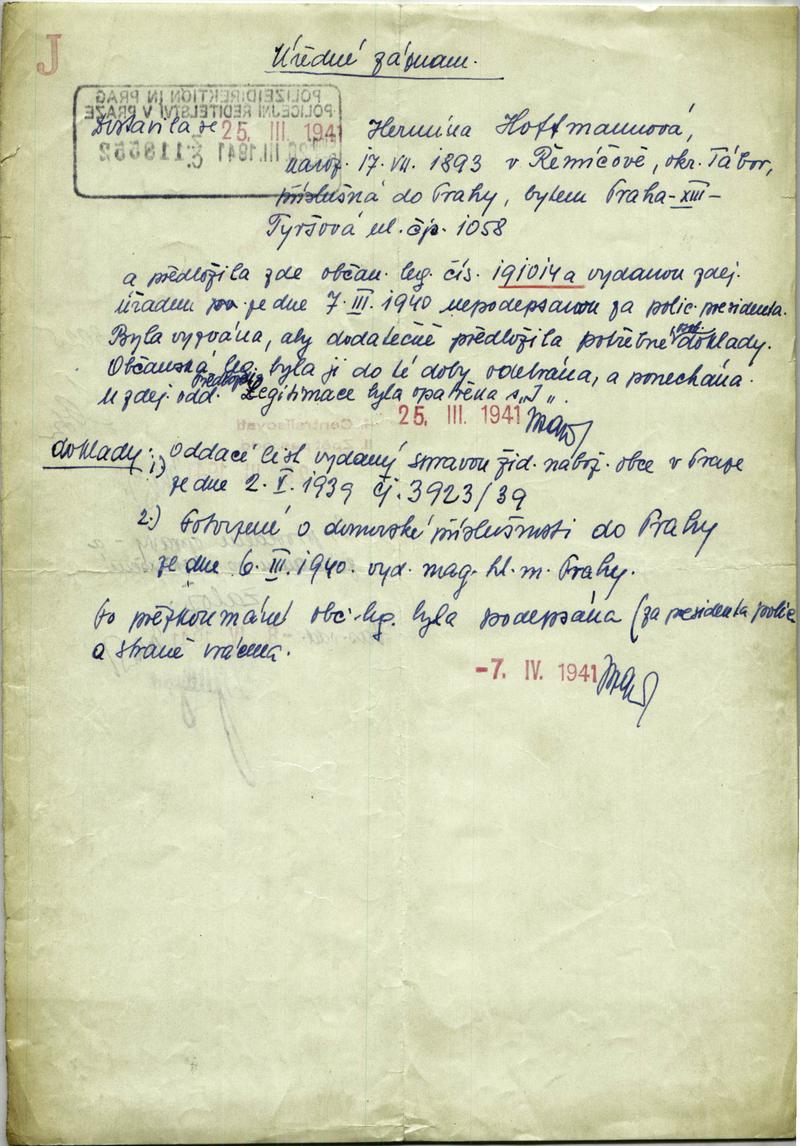 J
Úřední záznam.
POLIZEIDIREKTION IN PRAG
POLICEJNÍ ŘEDITELSTVÍ V PRAZE
III.1941 č. 118552
Dostavila se 25. III. 1941 Hermina Hoffmannová,
naroz. 17. VII. 1893 v Řemíčově, okr. Tábor,
příslušná do Prahy, bytem Praha-XIII-
Tyršová ul. čp. 1058
a předložila zde občan. leg. čís. 191014a vydanou zdej.
úřadem ze dne 7. III. 1940 nepodepsanou za polic. presidenta.
Byla vyzvána, aby dodatečně předložila potřebné doklady.
Občanská leg. byla jí do té doby odebrána, a ponechána
u zdej. odd. Legitimace byla opatřena s „J".
25. III. 1941
doklady: 1) Oddací list vydaný správou žid. nábož. obce v Praze
ze dne 2. V. 1939 čj. 3923/39
2.) Potvrzení o domovské příslušnosti do Prahy
ze dne 6. III. 1940. vyd. mag. hl. m. Prahy.
Po přezkoumání obč. leg. byla podepsána (za presidenta policie
a straně vrácena.
-7. IV. 1941